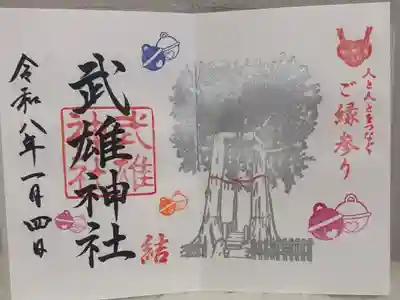 人と人とをつなぐ
ご縁参り
武雄神社
武雄
神社
結
令和八年一月四日